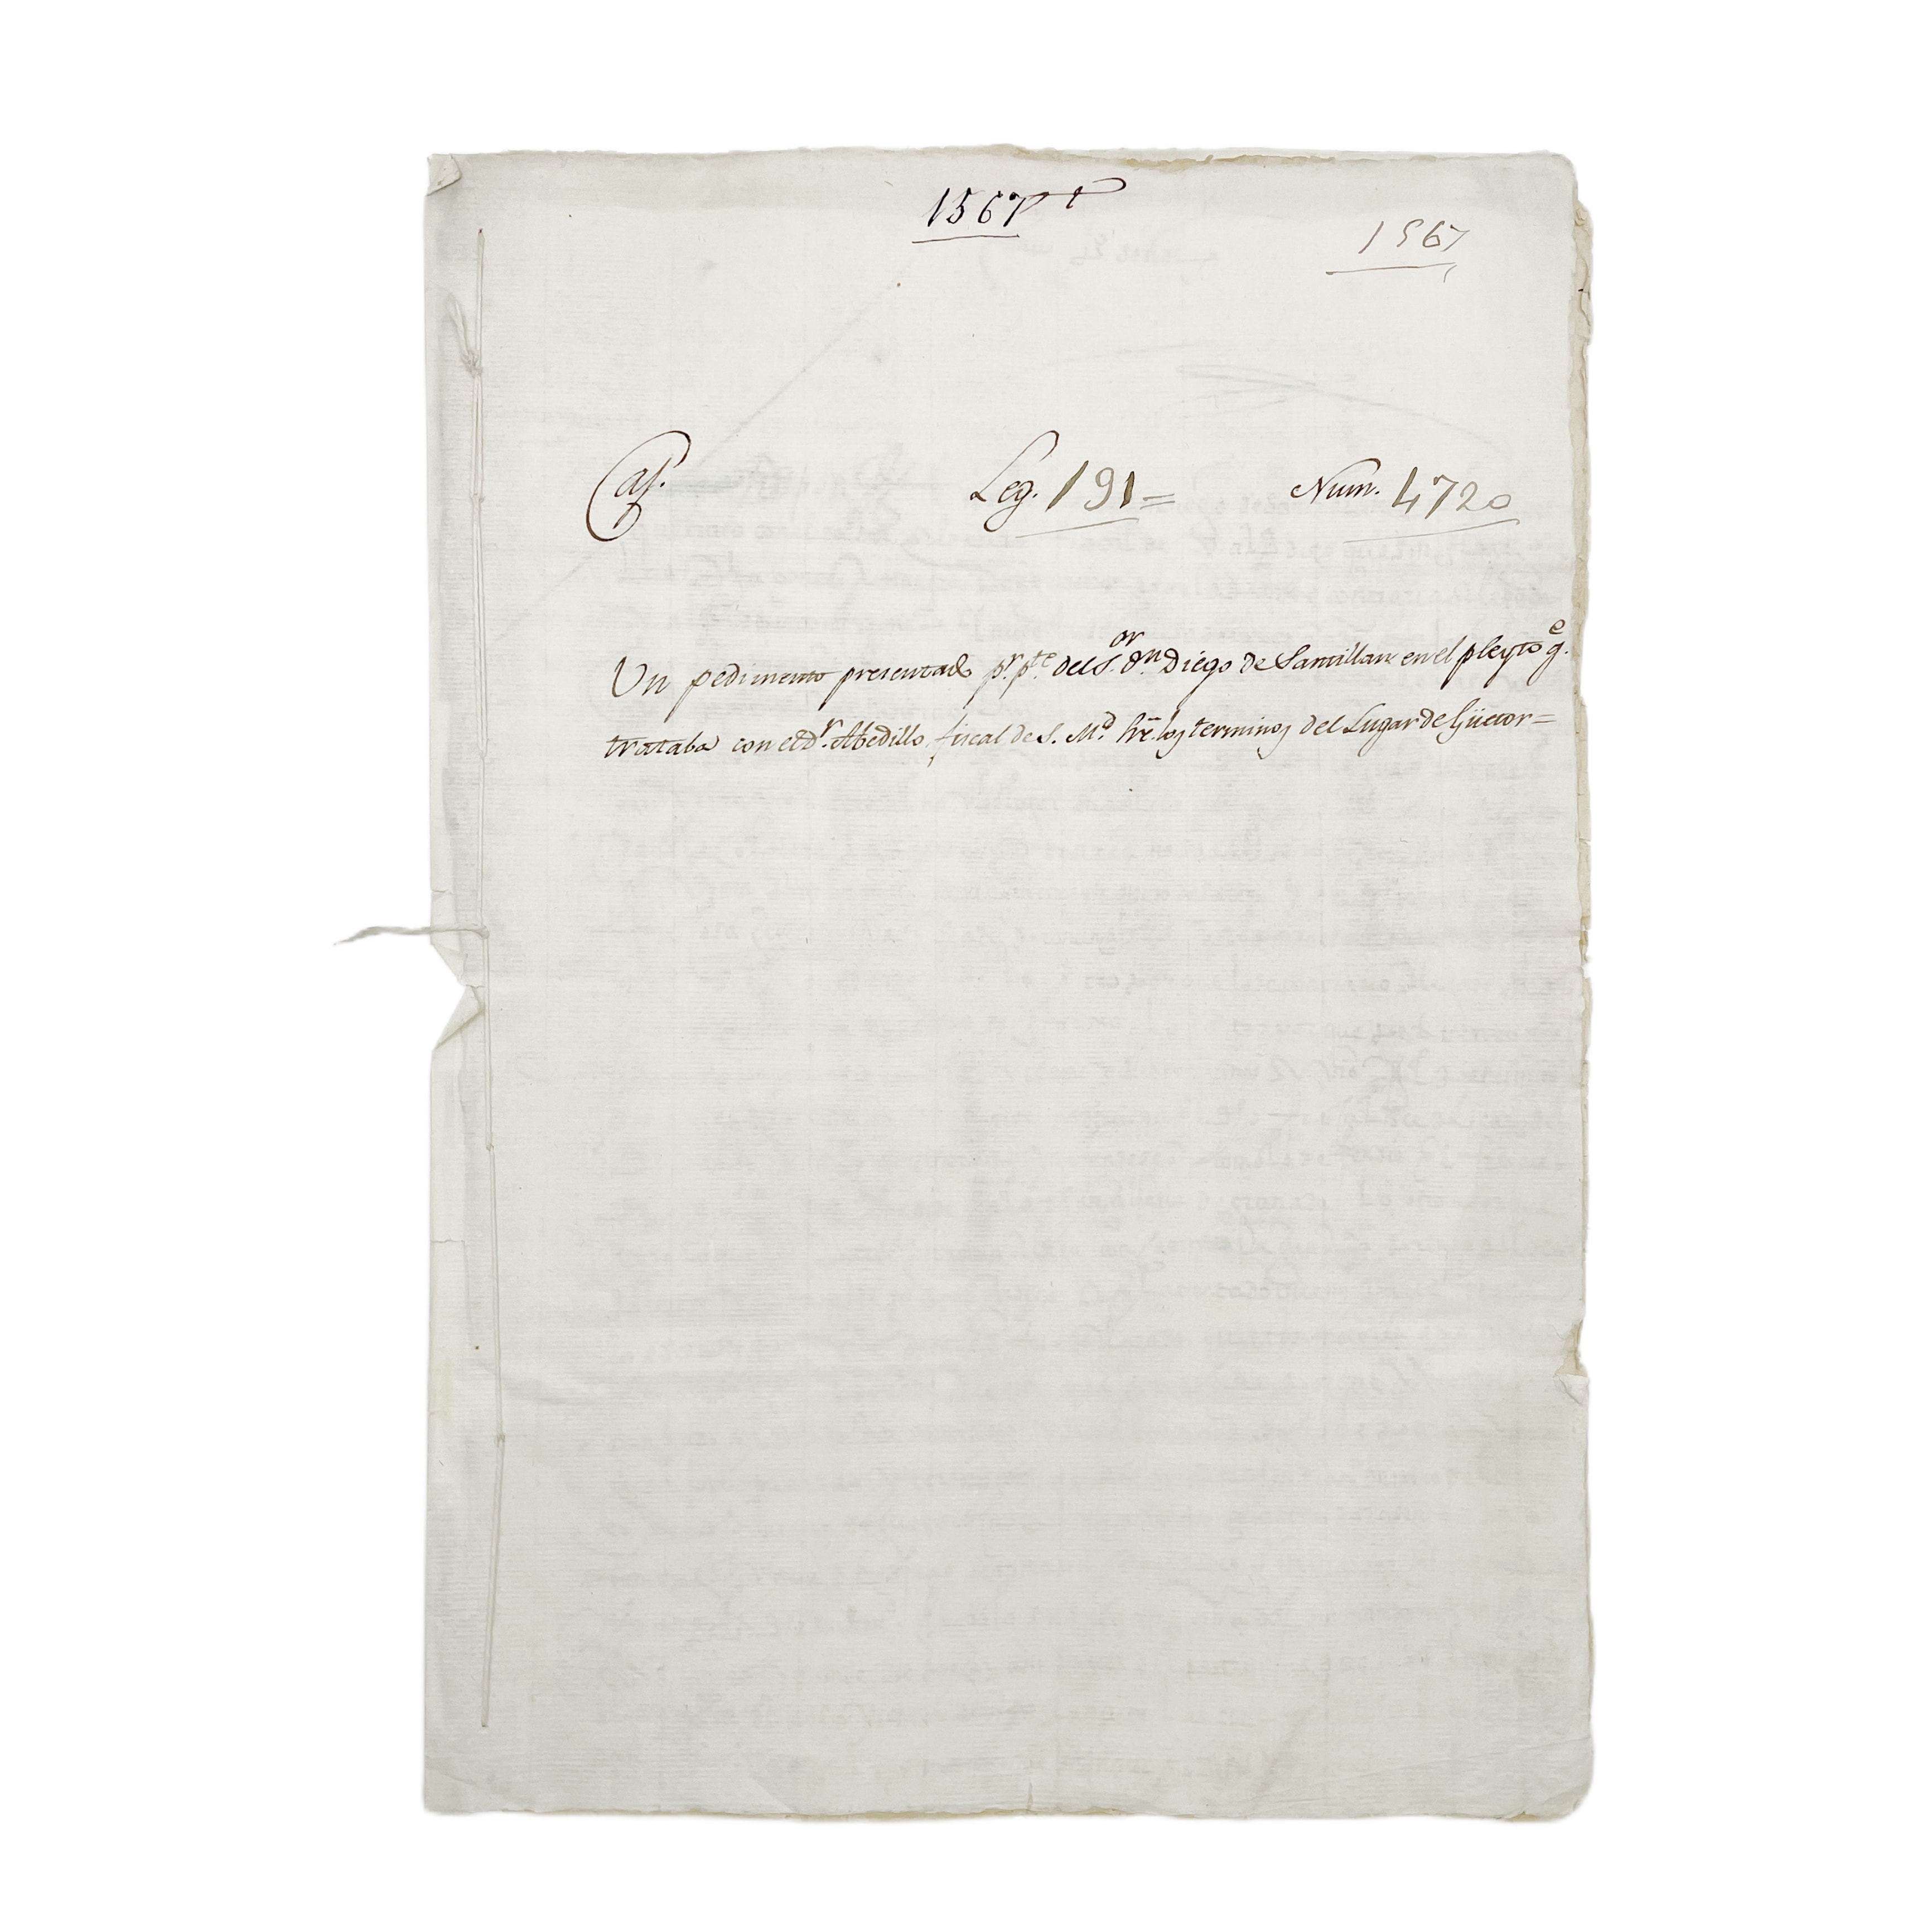 1567
1567
Caj. Leg. 191= Num. 4720
Un pedimento presentado pr. pte. del S.or dn. Diego de Santillan en el pleyto q.e
trataba con el d.r Abedillo, fiscal de S. M.d sre. los terminos del Lugar de Güetor=